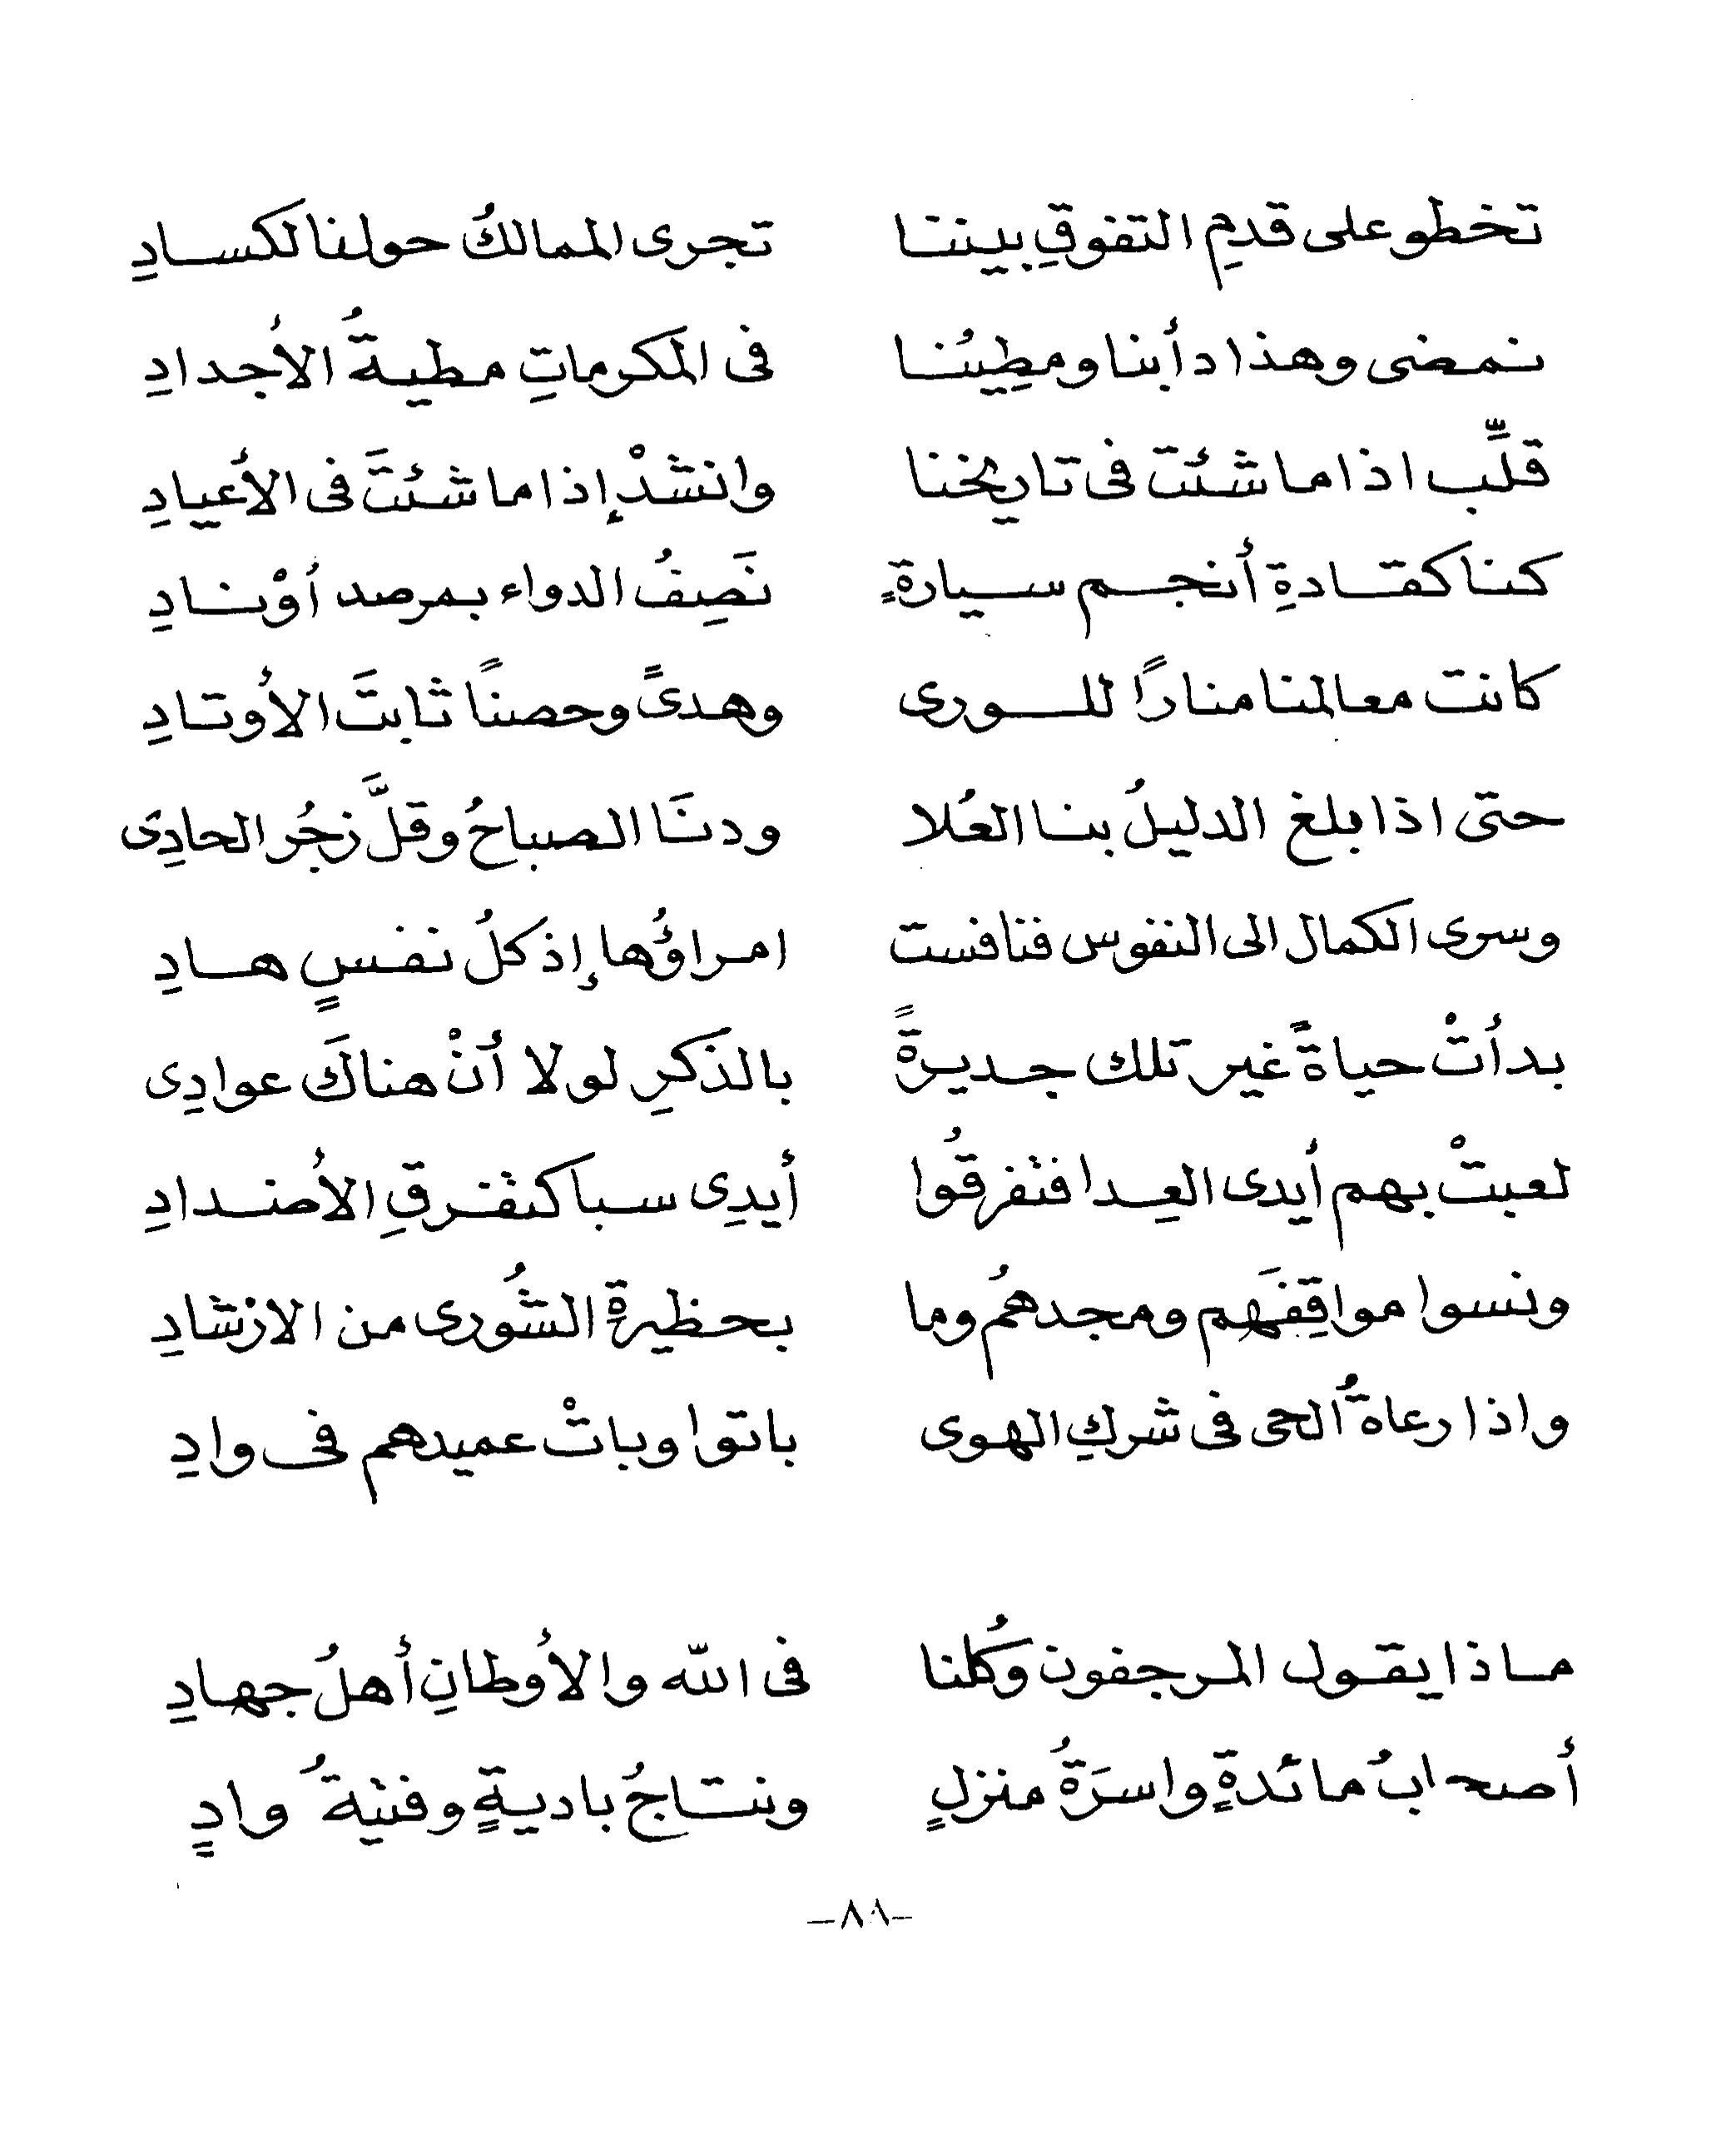 تخطو على قدمِ التفوقِ بيننا تجرى الممالكُ حولنا لكسادِ
نمضى وهذا دأبنا ومطِيئُنا فى المكرماتِ مطيةُ الأجدادِ
قلِّب اذا ما شئت فى تاريخنا وانشدْ إذا ما شئتَ فى الأعيادِ
كنا كقادةِ أنجم سيارةٍ نَصِفُ الدواء بمرصد أوْ نادِ
كانت معالمنا منارًا للورى وهدىً وحصنًا ثابتَ الأوتادِ
حتى اذا بلغ الدليلُ بنا العُلا ودنَا الصباحُ وقلَّ زجُر الحادِى
وسرى الكمال الى النفوس فنافست امراؤُها إذ كلُ نفسٍ هادِ
بدأتْ حياةً غير تلك جديرةً بالذكرِ لولا أنْ هناكَ عوادِى
لعبتْ بهم أيدى العِدا فتفرقُوا أيدِى سبا كتفرقِ الأضدادِ
ونسوا مواقِفَهم ومجدهُم وما بحظيرةِ الشُورى من الارْشادِ
واذا رعاةُ الحى فى شركِ الهوى باتوا وباتْ عميدهم فى وادِ
ماذا يقول المرجفون وكُلنا فى الله والأوطانِ أهلُ جهادِ
أصحابُ مائدةٍ واسرَةُ منزلٍ ونتاجُ باديةٍ وفتيةُ وادٍ
-٨٨-